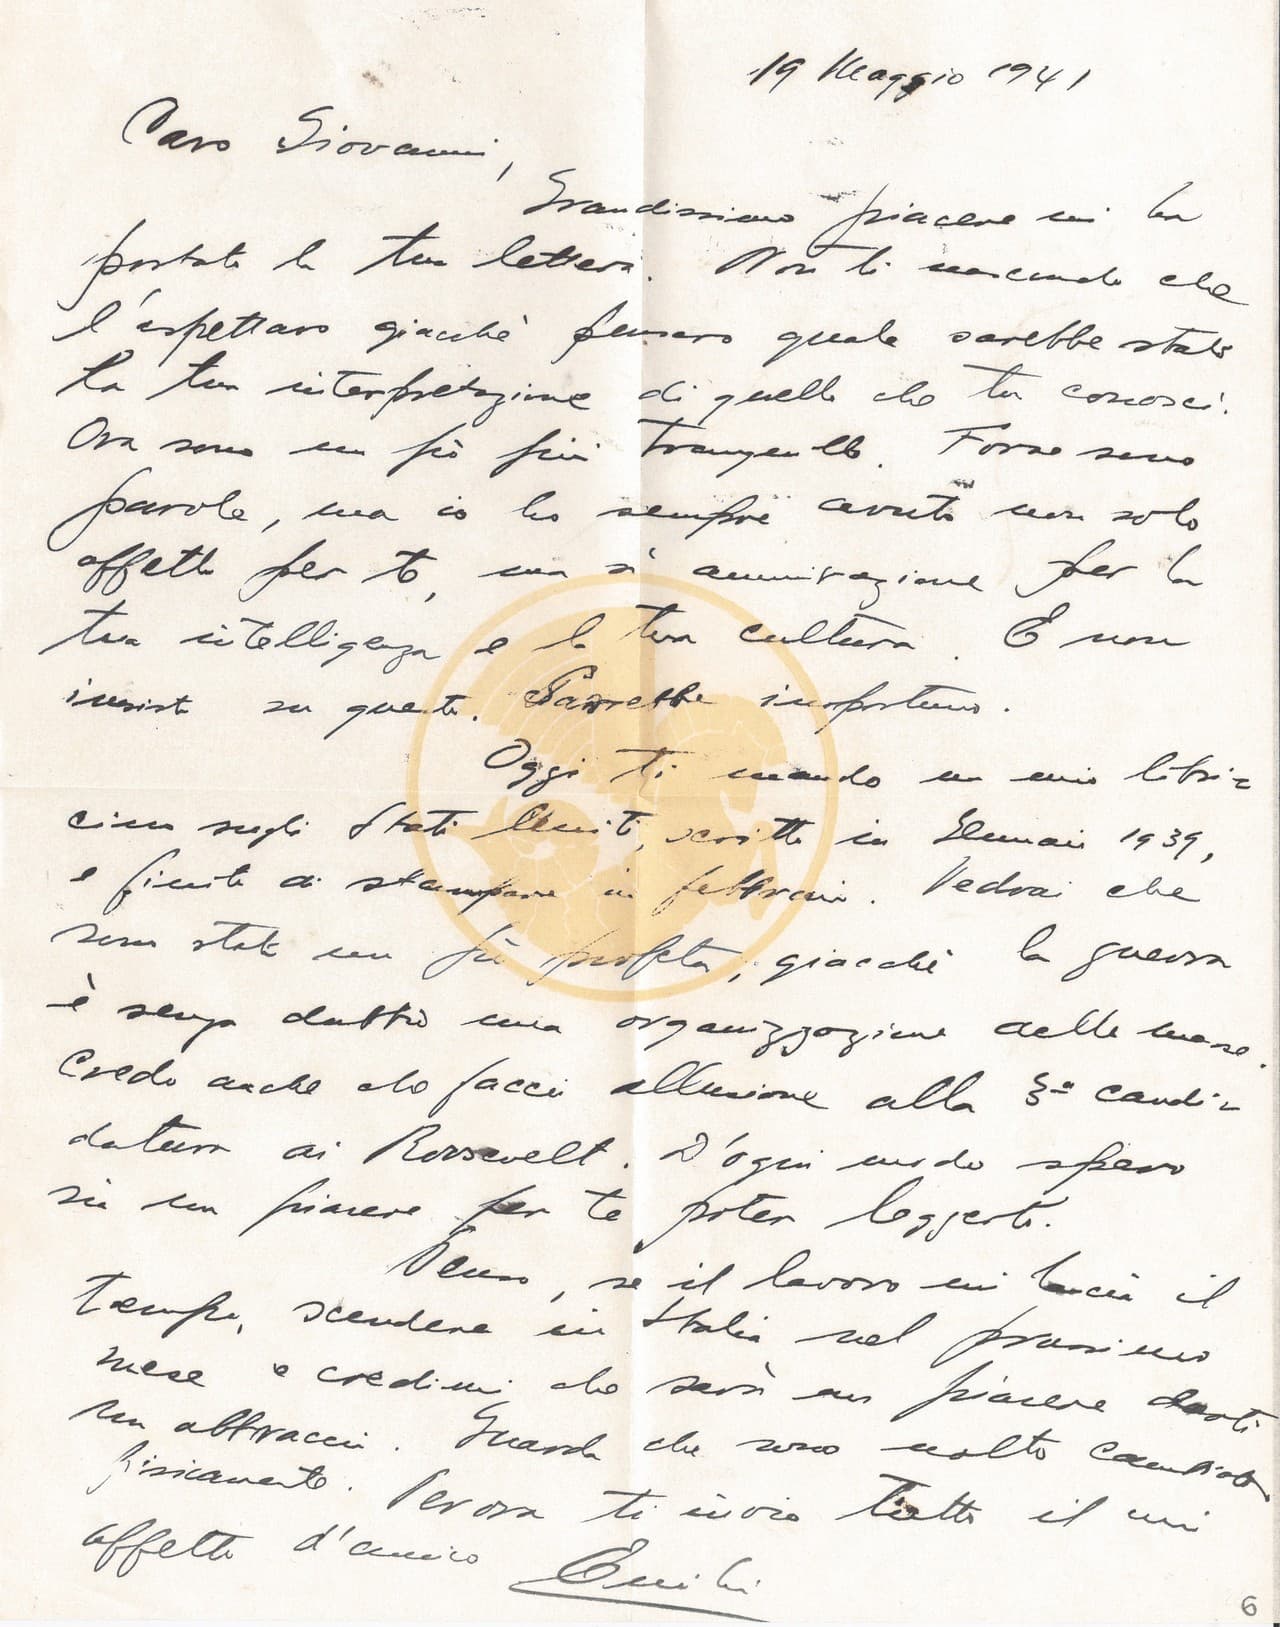 19 Maggio 1941
Caro Giovanni,
Grandissimo piacere mi ha
portato la tua lettera. Non ti nascondo che
l'aspettavo giacchè pensavo quale sarebbe stata
la tua interpretazione di quello che tu conosci.
Ora sono un pò più tranquillo. Forse sono
parole, ma io ho sempre avuto non solo
affetto per te, ma sì ammirazione per la
tua intelligenza e la tua cultura. E non
insisto su questo. Parrebbe inopportuno.
Oggi ti mando un mio libri-
cino sugli Stati Uniti, scritto in Gennaio 1939,
e finito di stampare in febbraio. Vedrai che
sono stato un pò profeta, giacchè la guerra
è senza dubbio una organizzazione delle masse.
Credo anche che facci allusione alla 3ª candi-
datura di Roosevelt. D'ogni modo spero
sia un piacere per te poter leggerlo.
Penso, se il lavoro mi lascia il
tempo, scendere in Italia nel prossimo
mese e credimi che sarà un piacere darti
un abbraccio. Guarda che sono molto cambiato
fisicamente. Per ora ti invio tutto il mio
affetto d'amico Emilio
6